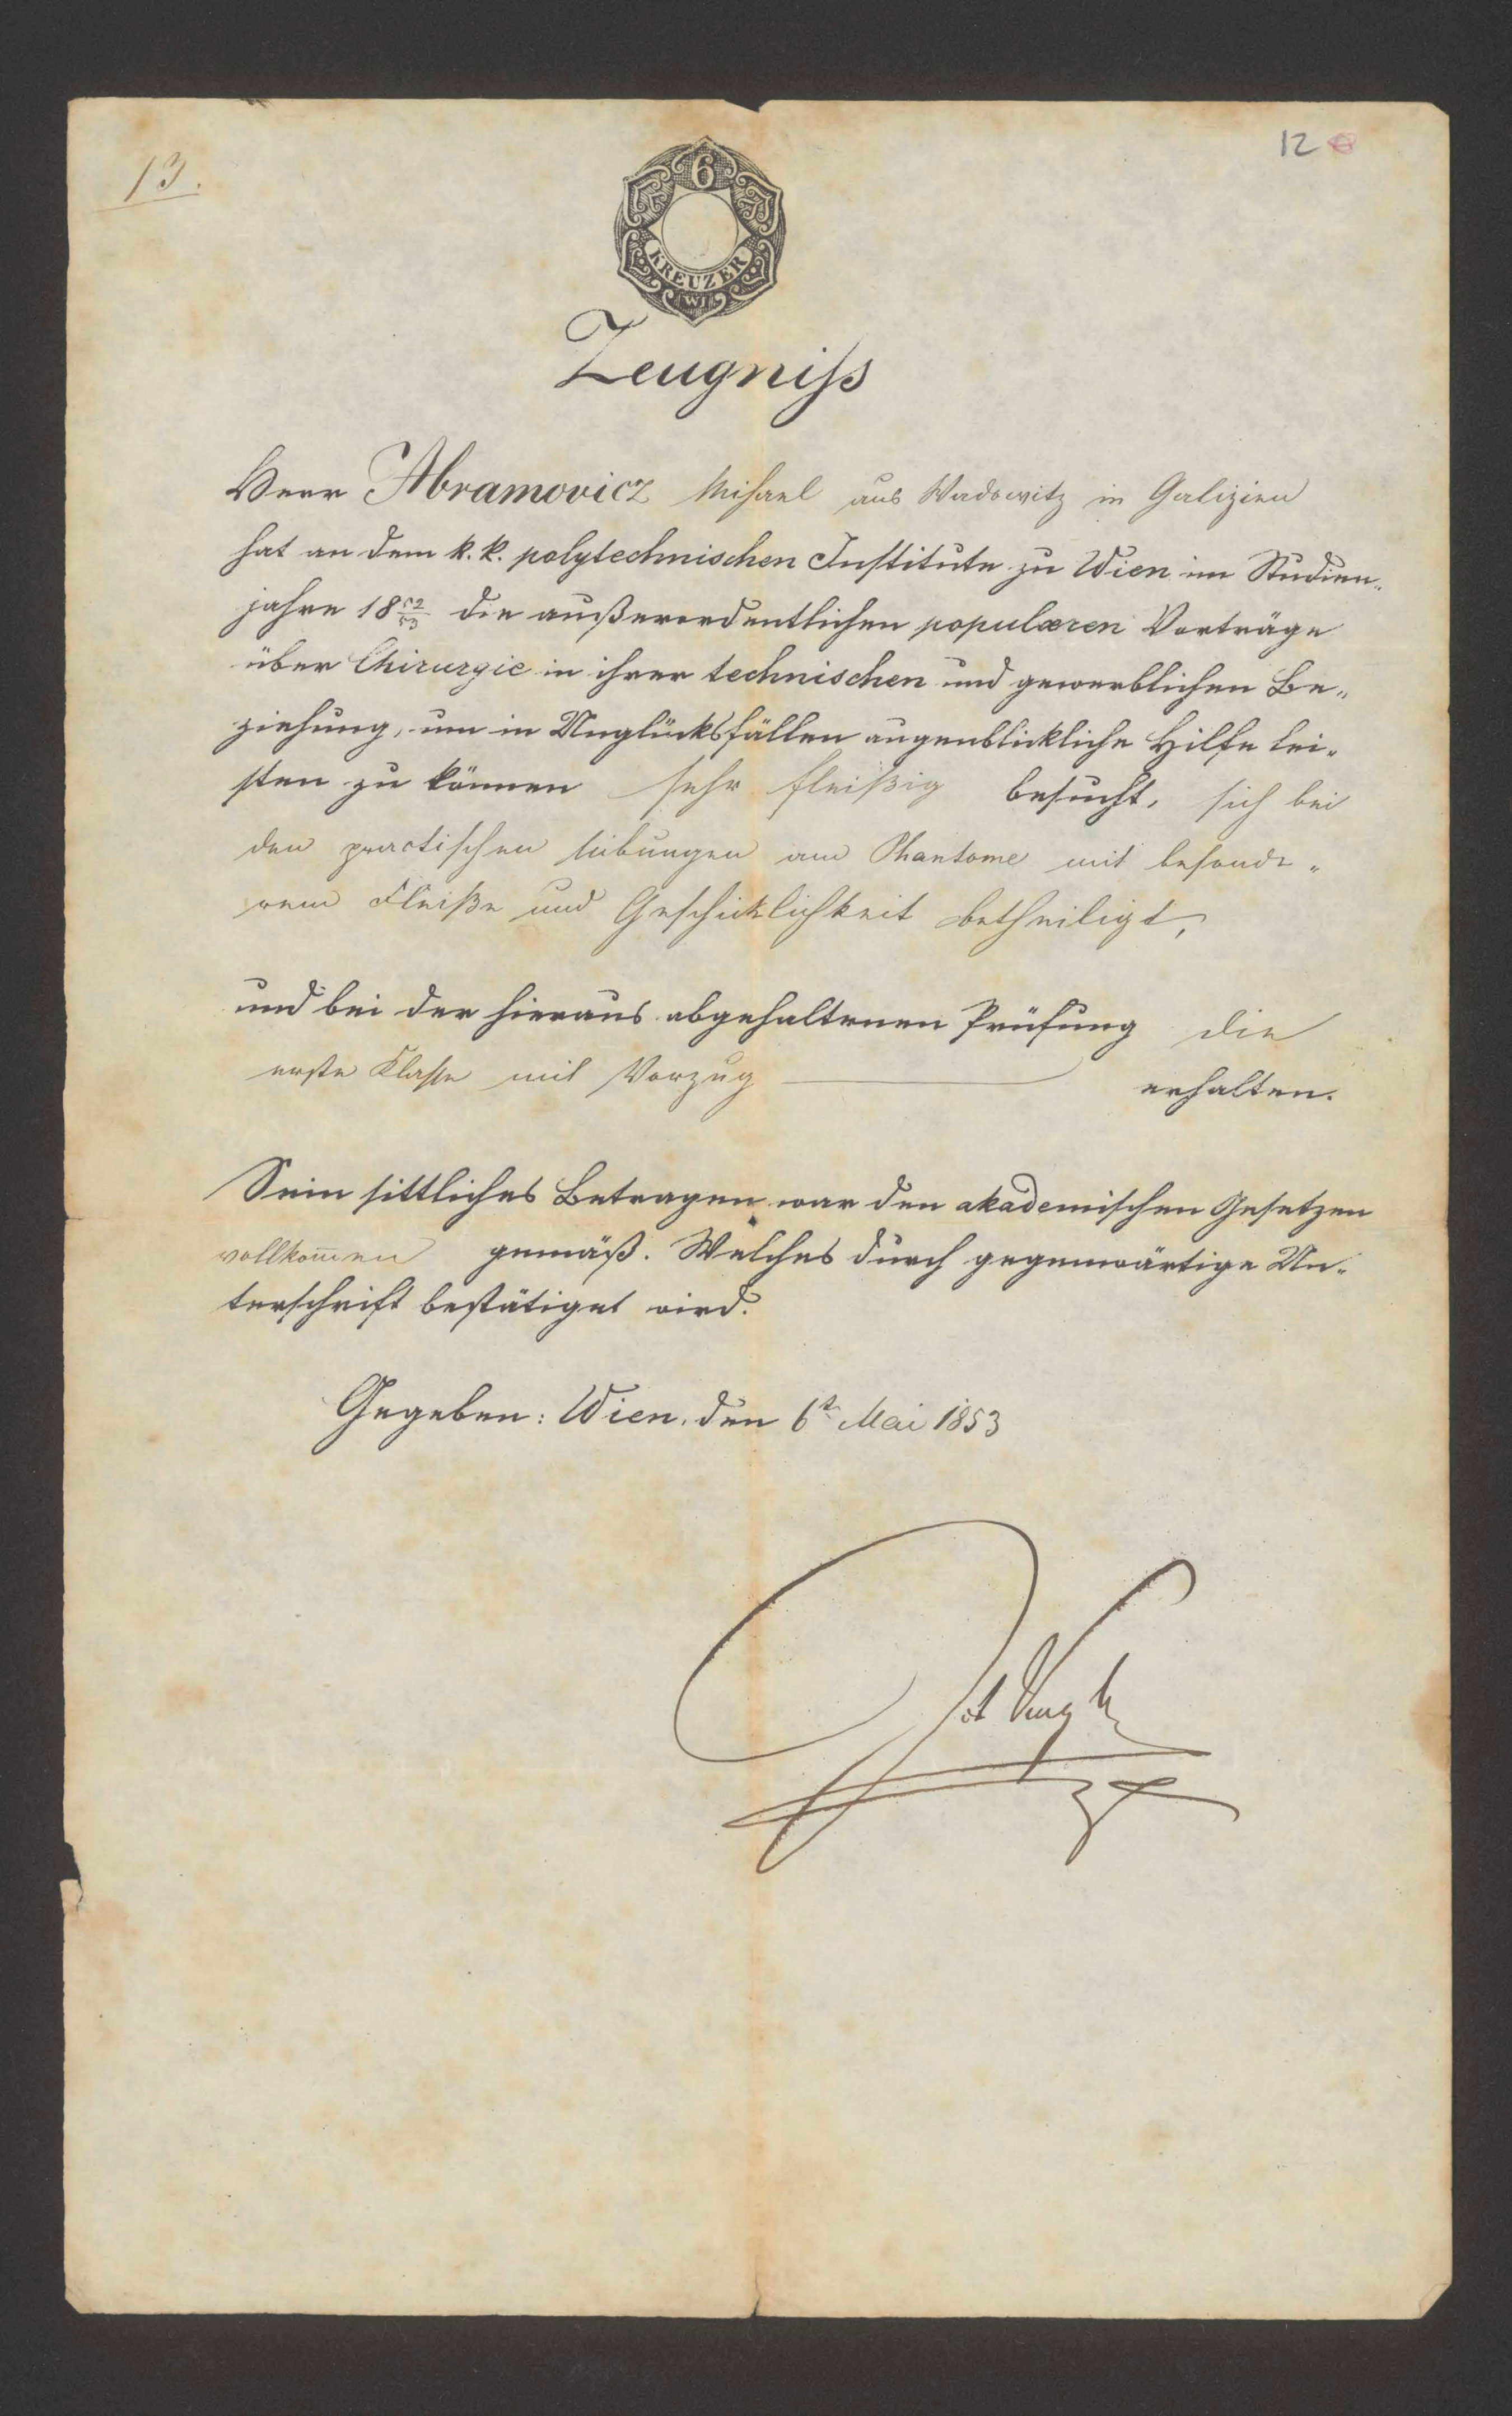 13.
12
6
KREUZER
WI
Zeugniß
Herr Abramovicz Michael aus Wadowitz in Galizien
hat an dem k. k. polytechnischen Institute zu Wien im Studien„
jahre 18 52/53 die außerordentlichen populæren Vorträge
über Chirurgie in ihrer technischen und gewerblichen Be„
ziehung, um in Unglücksfällen augenblickliche Hilfe lei„
sten zu können sehr fleißig besucht, sich bei
den practischen Uibungen am Phantome mit besonde„
rem Fleiße und Geschicklichkeit betheiligt,
und bei der hieraus abgehaltenen Prüfung die
erste Klasse mit Vorzug erhalten.
Sein sittliches Betragen war den akademischen Gesetzen
vollkom̄en gemäß. Welches durch gegenwärtige Un„
terschrift bestätiget wird.
Gegeben: Wien, den 6t Mai 1853